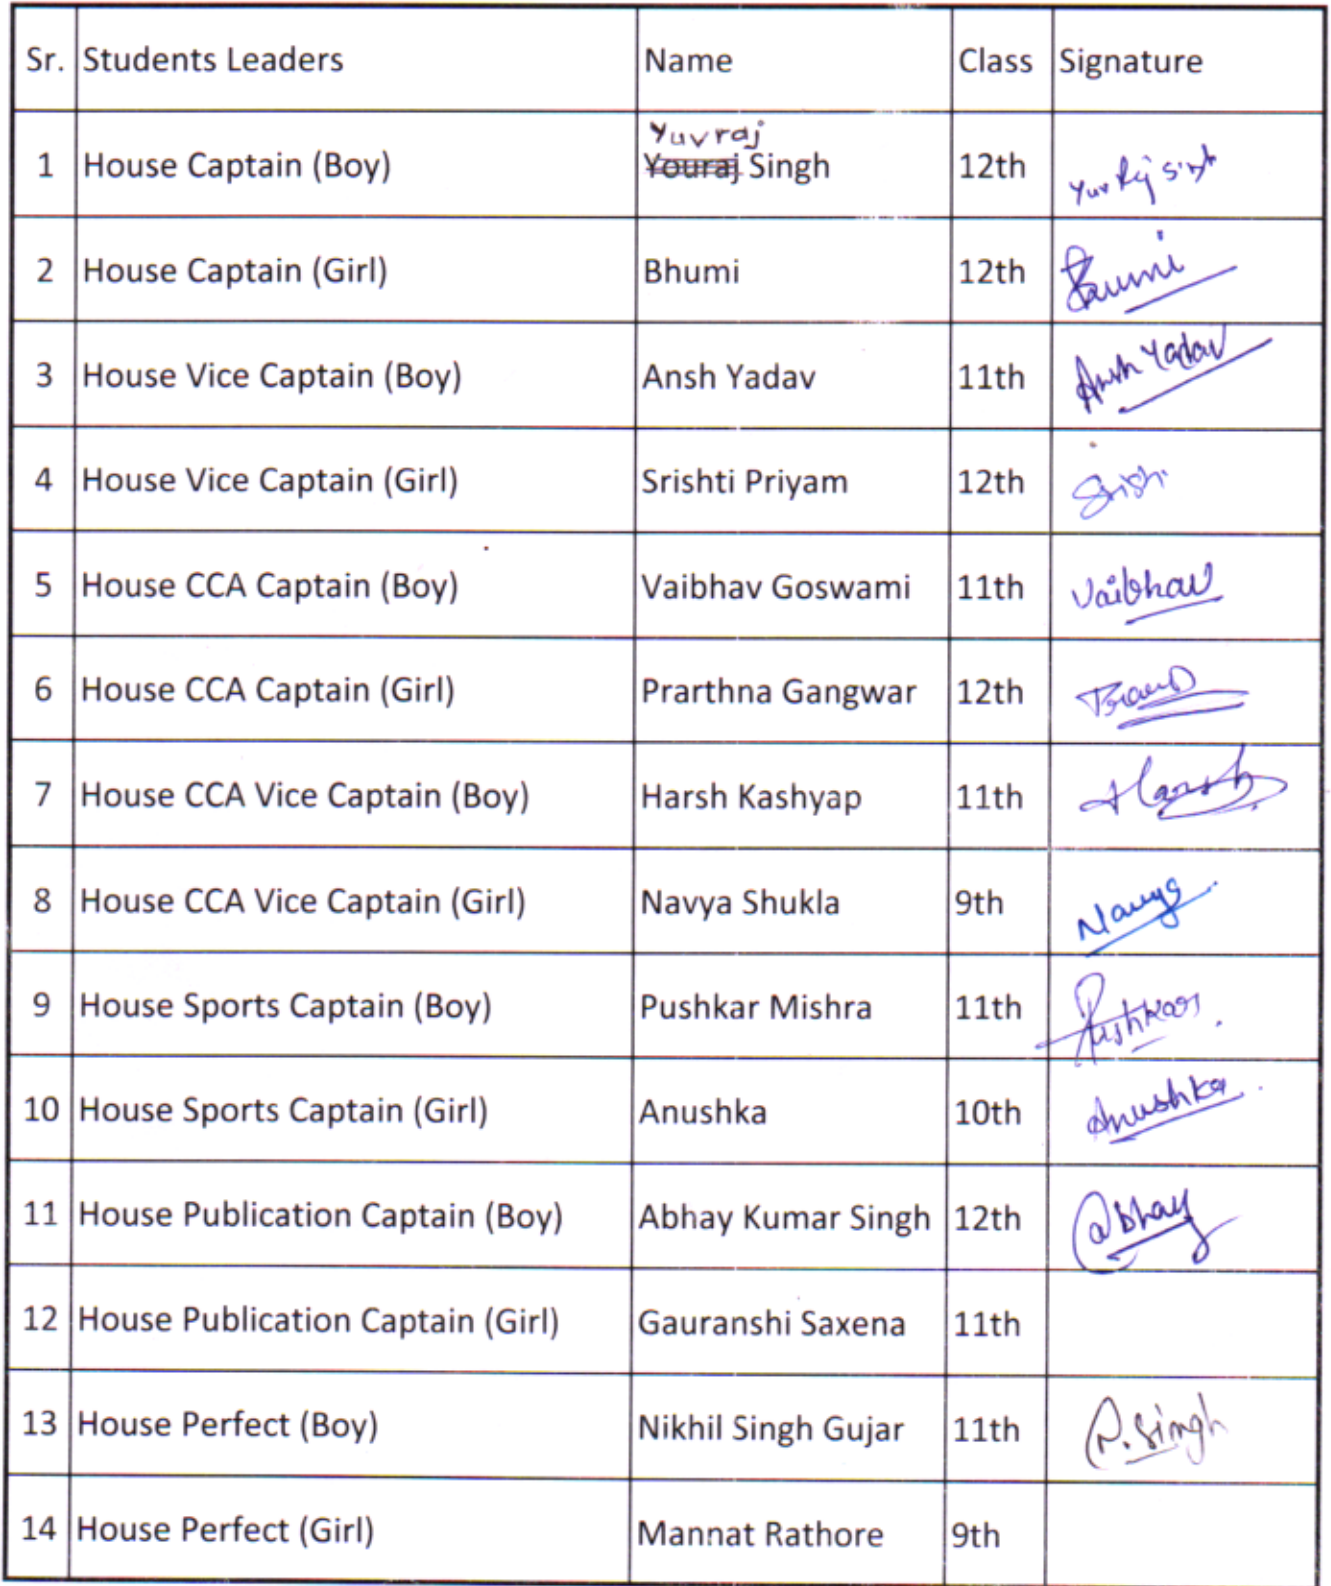 Sr. Students Leaders Name Class Signature
Yuvraj
1 House Captain (Boy) Youraj Singh 12th Yuvraj Singh
2 House Captain (Girl) Bhumi 12th
3 House Vice Captain (Boy) Ansh Yadav 11th Ansh Yadav
4 House Vice Captain (Girl) Srishti Priyam 12th
5 House CCA Captain (Boy) Vaibhav Goswami 11th Vaibhav
6 House CCA Captain (Girl) Prarthna Gangwar 12th
7 House CCA Vice Captain (Boy) Harsh Kashyap 11th Harsh
8 House CCA Vice Captain (Girl) Navya Shukla 9th Navya
9 House Sports Captain (Boy) Pushkar Mishra 11th Pushkar
10 House Sports Captain (Girl) Anushka 10th Anushka
11 House Publication Captain (Boy) Abhay Kumar Singh 12th Abhay
12 House Publication Captain (Girl) Gauranshi Saxena 11th
13 House Perfect (Boy) Nikhil Singh Gujar 11th N. Singh
14 House Perfect (Girl) Mannat Rathore 9th